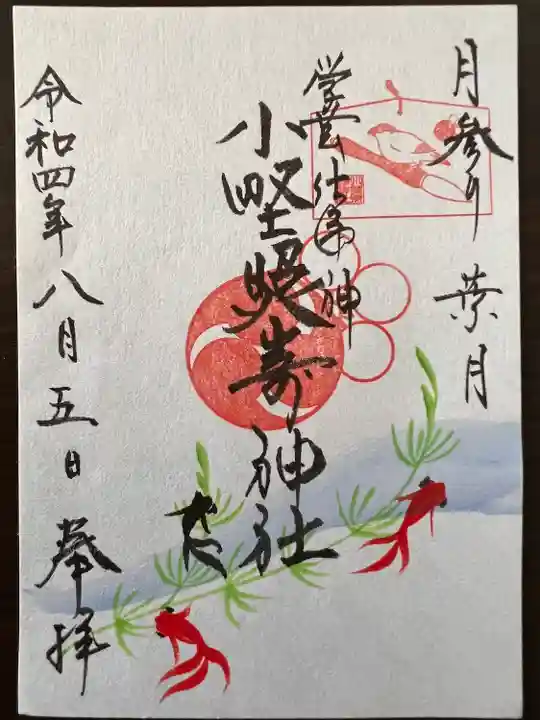 月参り 葉月
学芸仕事神
小野照崎神社
令和四年八月五日 奉拝